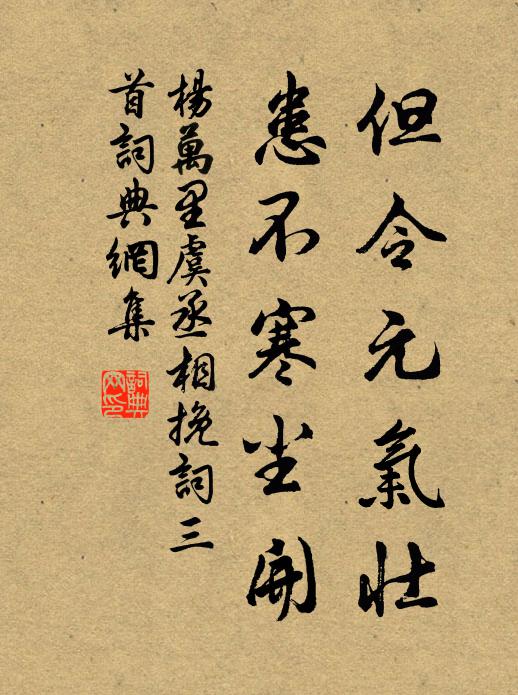 但令元氣壯
患不寒尘開
楊萬里虞丞相挽詞三
首詞典網集
詞典
网印